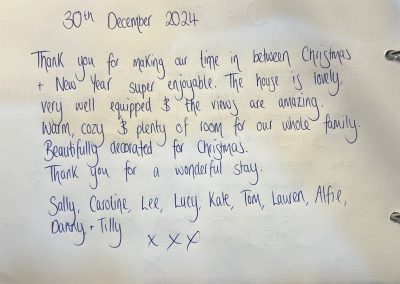 30th December 2024
Thank you for making our time in between Christmas
+ New Year super enjoyable. The house is lovely
very well equipped & the views are amazing.
Warm, cozy & plenty of room for our whole family.
Beautifully decorated for Christmas.
Thank you for a wonderful stay.
Sally, Caroline, Lee, Lucy, Kate, Tom, Lauren, Alfie,
Danny + Tilly x x x